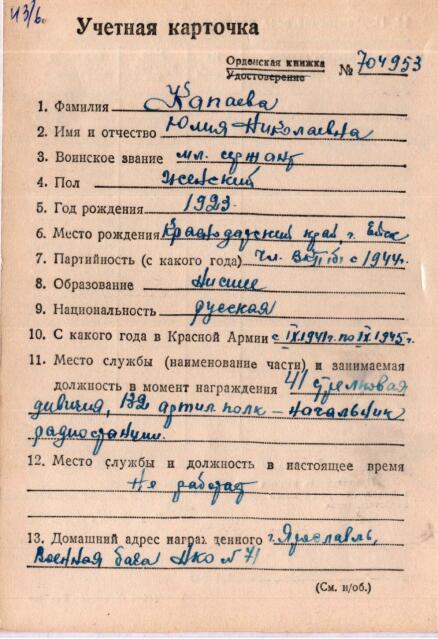 Учетная карточка
Орденская книжка
Удостоверение
№ 704953
1. Фамилия Капаева
2. Имя и отчество Юлия Николаевна
3. Воинское звание мл. сержант
4. Пол женский
5. Год рождения 1923
6. Место рождения Краснодарский край, г. Ейск
7. Партийность (с какого года) Чл. ВКП(б) с 1944г.
8. Образование низшее
9. Национальность русская
10. С какого года в Красной Армии с IX.1941г. по IX.1945г.
11. Место службы (наименование части) и занимаемая
должность в момент награждения 41 стрелковая
дивизия, 132 артил. полк – начальник
радиостанции.
12. Место службы и должность в настоящее время
Не работает
13. Домашний адрес награжденного г. Ярославль,
Военная база НКО № 71
(См. н/об.)